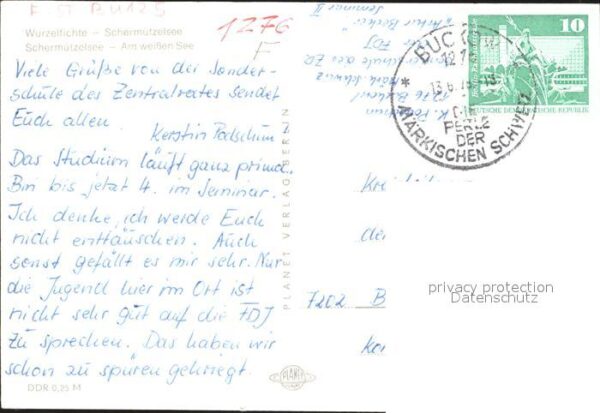 1276
F
Wurzelfichte - Schermützelsee
Schermützelsee - Am weißen See
Viele Grüße von der Sonder-
schule des Zentralrates sendet
Euch allen
Kerstin
Das Studium läuft ganz prima.
Bin bis jetzt 4. im Seminar.
Ich denke, ich werde Euch
nicht enttäuschen. Auch
sonst gefällt es mir sehr. Nur
die Jugend hier im Ort ist
nicht sehr gut auf die FDJ
zu sprechen. Das haben wir
schon zu spüren gekriegt.
DDR 0,25 M
PLANET VERLAG BERLIN
PLANET
K.
1276
der FDJ
Seminar II
BUCKOW
DIE
PERLE
DER
MÄRKISCHEN SCHWEIZ
10
DEUTSCHE DEMOKRATISCHE REPUBLIK
Kr
der
7202 B
privacy protection
Datenschutz